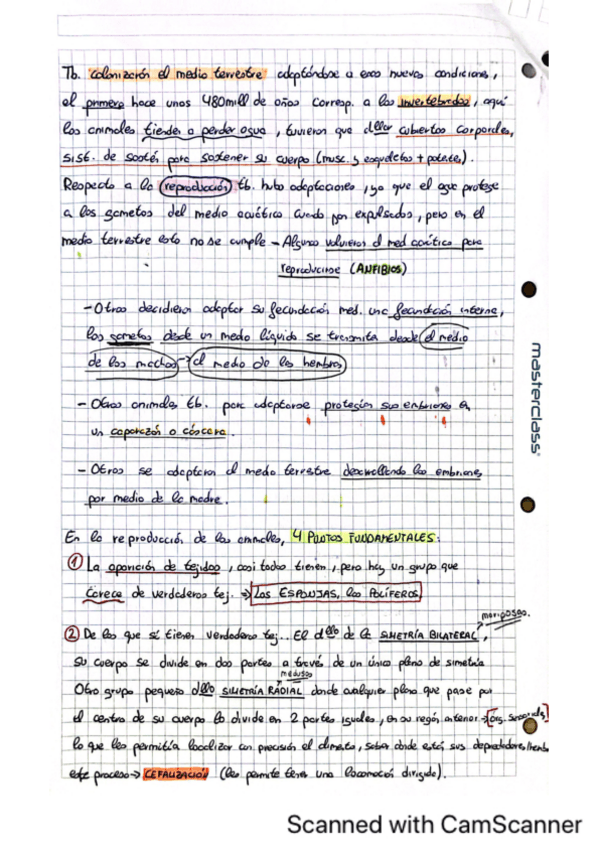 Tb. colonizarón el medio terrestre adaptándose a esas nuevas condiciones,
el primero hace unos 480mill de años corresp. a los invertebrados, aquí
los animales tienden a perder agua, tuvieron que dllar cubiertas corporales,
sist. de sostén para sostener su cuerpo (musc. y esqueletos + potetes).
Respecto a la reproducción tb. hubo adaptaciones, ya que el agua protege
a los gametos del medio acuático cuando son expulsados, pero en el
medio terrestre esto no se cumple - Algunos volvieron al med acuático para
reproducirse (ANFIBIOS)
- Otros decidieron adaptar su fecundación med. una fecundación interna,
los gametos desde un medio líquido se transmite desde el medio
de los machos → al medio de las hembras
- Otros animales tb. para adaptarse protegían sus embriones en
un caparazón o cáscara.
- Otros se adaptaron al medio terrestre desarrollando los embriones
por medio de la madre.
En la reproducción de los animales, 4 PUNTOS FUNDAMENTALES:
① La aparición de tejidos, casi todos tienen, pero hay un grupo que
carece de verdaderos tej. → Las ESPONJAS, los PORÍFEROS
mariposas.
② De los que sí tienen verdaderos tej.. El dllo de la SIMETRÍA BILATERAL,
su cuerpo se divide en dos partes a través de un único plano de simetría
medusas
Otro grupo pequeño dllo SIMETRÍA RADIAL donde cualquier plano que pase por
el centro de su cuerpo lo divide en 2 partes iguales, en su región anterior → [org. sensoriales]
lo que les permitía localizar con precisión el alimento, saber dónde están sus depredadores,
este proceso → CEFALIZACIÓN (les permite tener una locomoción dirigida).
masterclass
Scanned with CamScanner